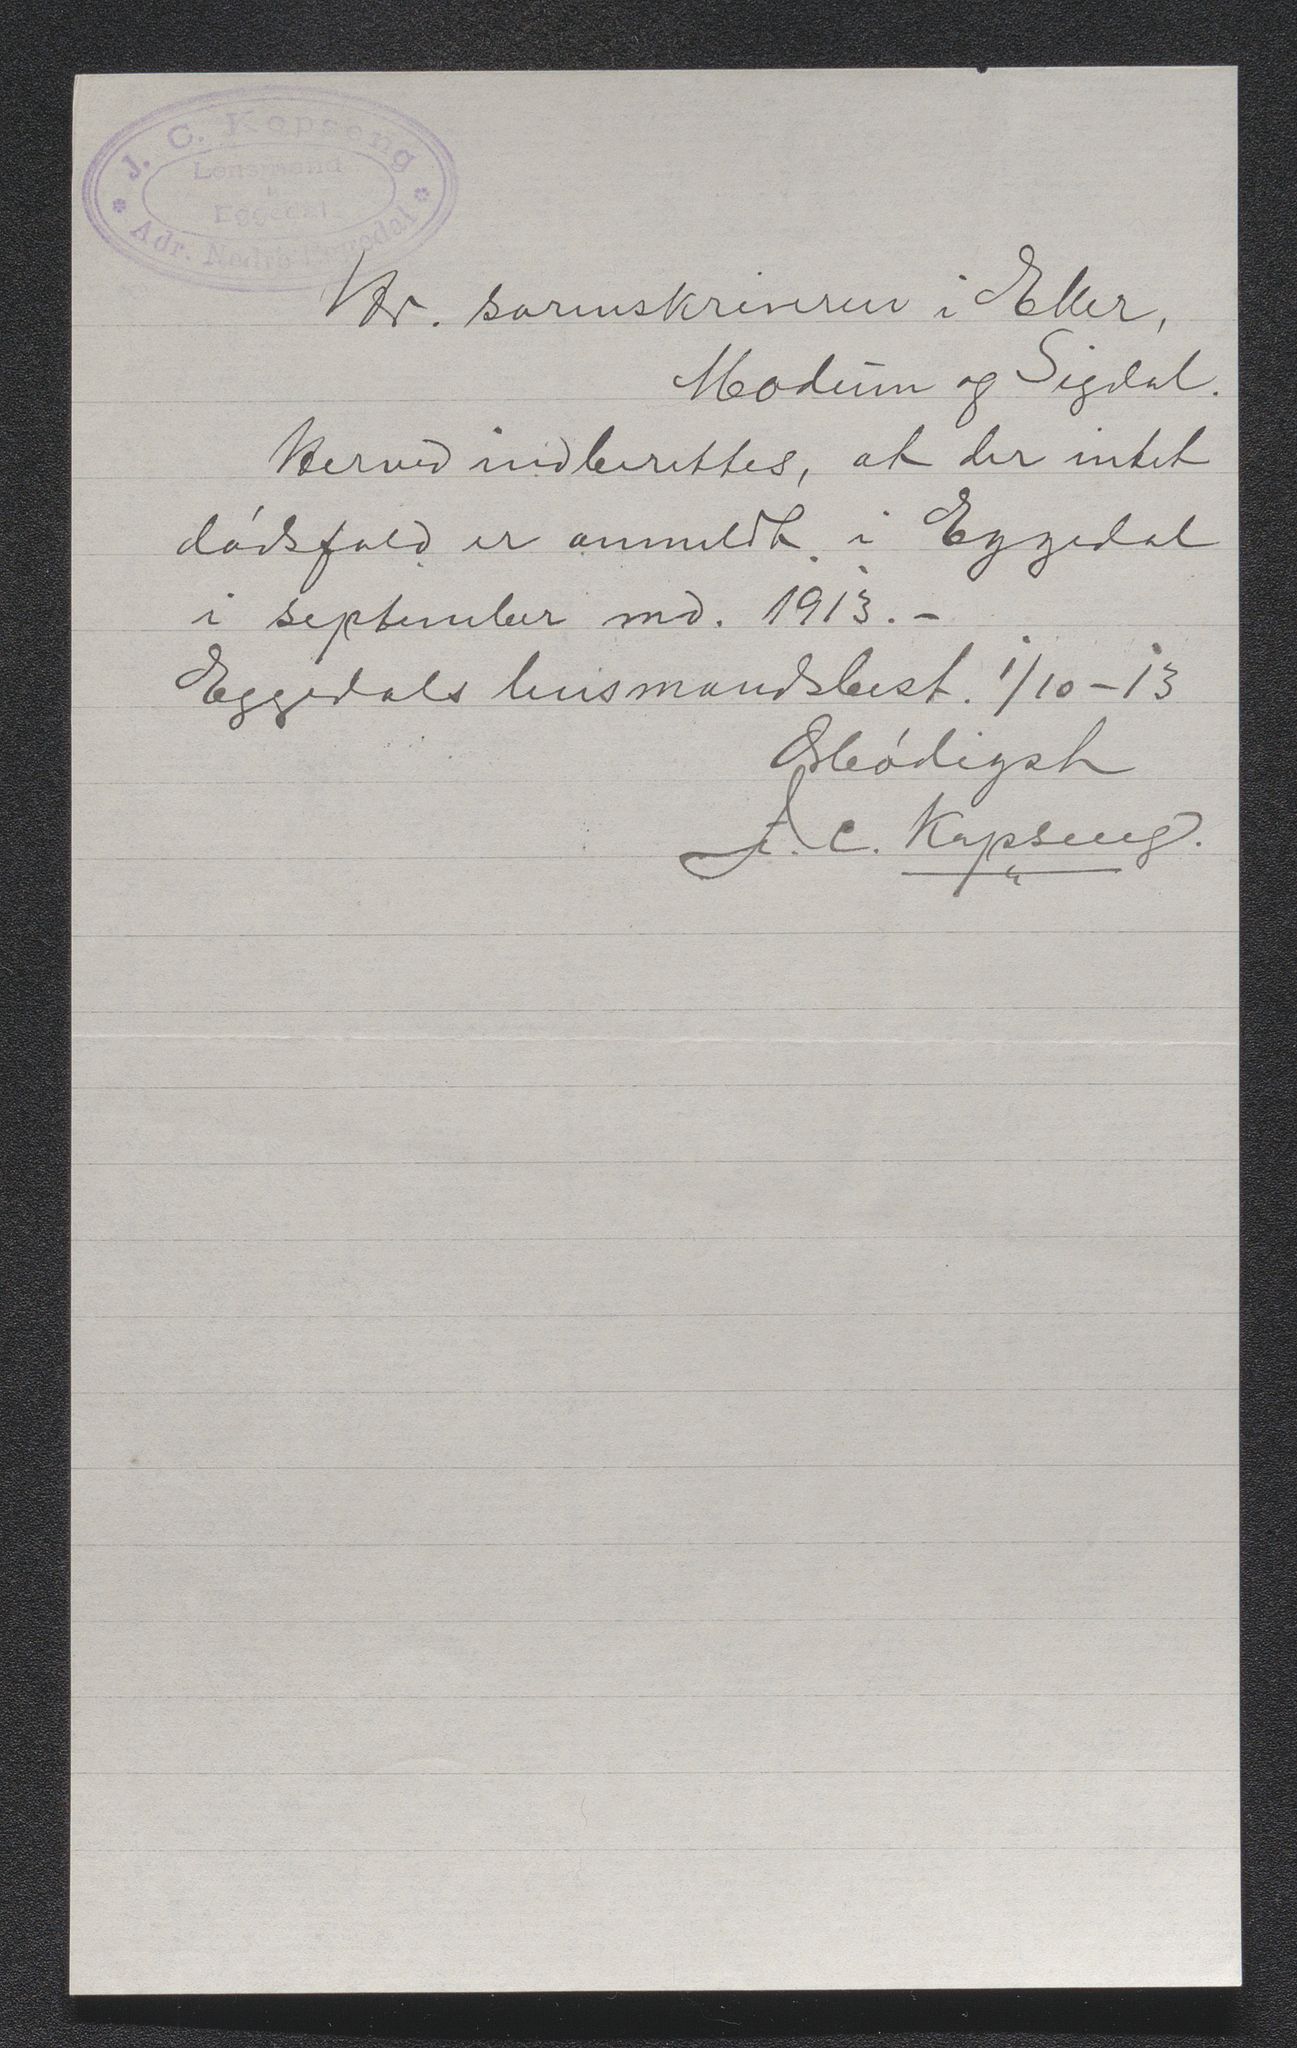 J. C. Kopseng
Lensmand
i
Eggedal
Adr. Nedre Eggedal
Hr. sorenskriveren i Eker,
Modum og Sigdal.
Herved indberettes, at der intet
dødsfald er anmeldt i Eggedal
i september md. 1913. –
Eggedals lensmandsbest. 1/10 – 13
Ærbødigst
J. C. Kopseng.